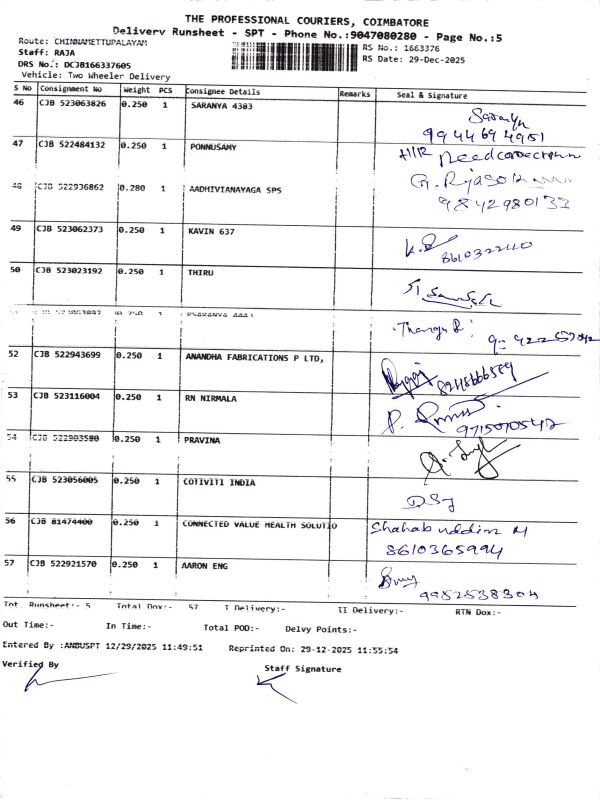 THE PROFESSIONAL COURIERS, COIMBATORE
Delivery Runsheet - SPT - Phone No.:9047080280 - Page No.:5
Route: CHINNAMETTUPALAYAM
RS No.: 1663376
Staff: RAJA
RS Date: 29-Dec-2025
DRS No.: DCJB166337605
Vehicle: Two Wheeler Delivery
S No Consignment No Weight PCS Consignee Details Remarks Seal & Signature
46 CJB 523063826 0.250 1 SARANYA 4383 Saranya
9944694951
47 CJB 522484132 0.250 1 PONNUSAMY
48 CJB 522936862 0.280 1 AADHIVIANAYAGA SPS
9842980133
49 CJB 523062373 0.250 1 KAVIN 637
8610322110
50 CJB 523023192 0.250 1 THIRU
52 CJB 522943699 0.250 1 ANANDHA FABRICATIONS P LTD,
53 CJB 523116004 0.250 1 RN NIRMALA
54 CJB 522903580 0.250 1 PRAVINA
55 CJB 523056005 0.250 1 COTIVITI INDIA
56 CJB 81474400 0.250 1 CONNECTED VALUE HEALTH SOLUTIO Shahab uddin M
8610365994
57 CJB 522921570 0.250 1 AARON ENG
9952538304
Tot. Runsheet:- 5 Total Dox:- 57 I Delivery:- II Delivery:- RTN Dox:-
Out Time:- In Time:- Total POD:- Delvy Points:-
Entered By :ANBUSPT 12/29/2025 11:49:51 Reprinted On: 29-12-2025 11:55:54
Verified By Staff Signature